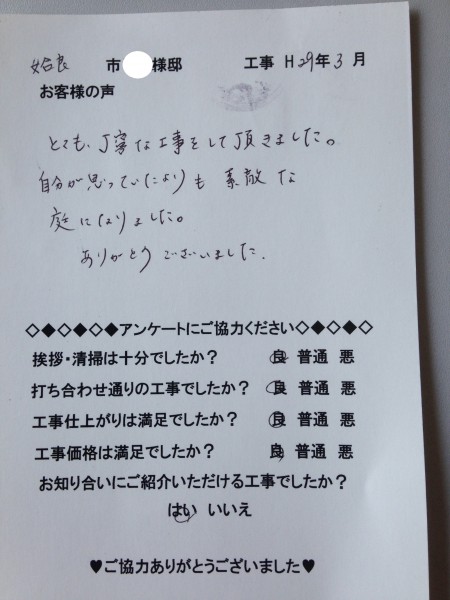 姶良 市 様邸 工事 H29年3月
お客様の声
とても、丁寧な工事をして頂きました。
自分が思っていたよりも 素敵 な
庭になりました。
ありがとう ございいました.
◇◆◇◆◇◆アンケートにご協力ください◇◆◇◆◇
挨拶・清掃は十分でしたか? 良 普通 悪
打ち合わせ通りの工事でしたか? 良 普通 悪
工事仕上がりは満足でしたか? 良 普通 悪
工事価格は満足でしたか? 良 普通 悪
お知り合いにご紹介いただける工事でしたか?
はい いいえ
♥ご協力ありがとうございました♥